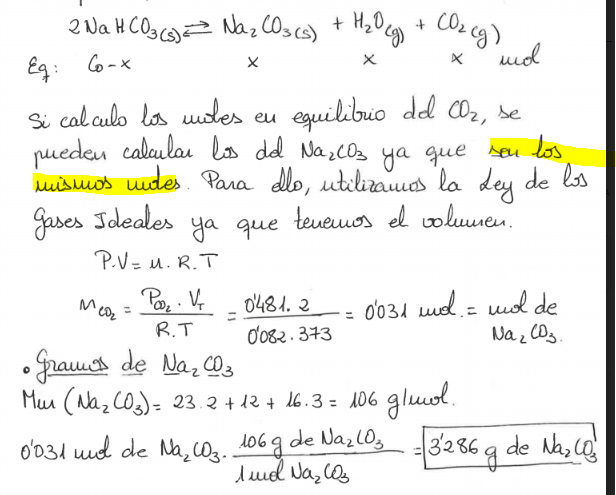 2NaHCO3(s) ⇄ Na2CO3(s) + H2O(g) + CO2(g)
Eq: Co-x x x x mol
Si calculo los moles en equilibrio del CO2, se
pueden calcular los del Na2CO3 ya que son los
mismos moles. Para ello, utilizamos la Ley de los
gases Ideales ya que tenemos el volumen.
P.V = n.R.T
nCO2 = PCO2 . VT / R.T = 0'481. 2 / 0'082.373 = 0'031 mol. = mol de Na2CO3.
• Gramos de Na2CO3
Mm (Na2CO3) = 23.2+12+16.3 = 106 g/mol.
0'031 mol de Na2CO3. 106 g de Na2CO3 / 1 mol Na2CO3 = 3'286 g de Na2CO3